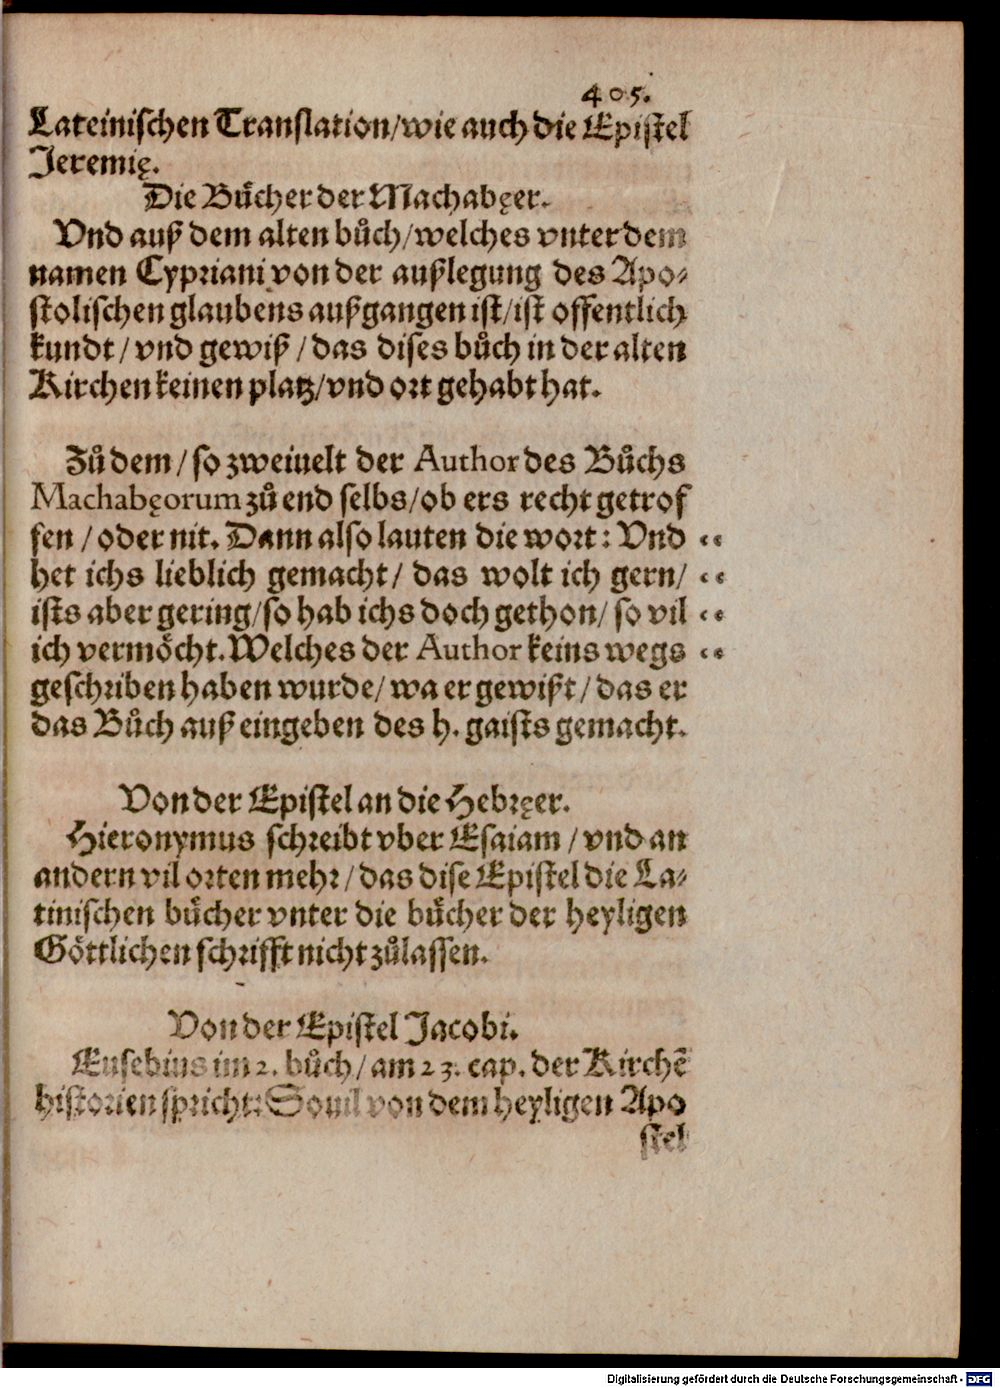 405.
Lateinischen Translation/wie auch die Epistel
Jeremię.
Die Bücher der Machabęer.
Vnd auß dem alten bůch/welches vnter dem
namen Cypriani von der außlegung des Apo-
stolischen glaubens außgangen ist/ist offentlich
kundt/vnd gewiß/das dises bůch in der alten
Kirchen keinen platz/vnd ort gehabt hat.
Zů dem/so zweiuelt der Author des Bůchs
Machabęorum zů end selbs/ob ers recht getrof
fen/oder nit. Dann also lauten die wort: Vnd
het ichs lieblich gemacht/ das wolt ich gern/
ists aber gering/so hab ichs doch gethon/ so vil
ich vermöcht. Welches der Author keins wegs
geschriben haben wurde/ wa er gewißt/das er
das Bůch auß eingeben des h. gaists gemacht.
Von der Epistel an die Hebręer.
Hieronymus schreibt vber Esaiam/vnd an
andern vil orten mehr/das dise Epistel die La-
tinischen bücher vnter die bücher der heyligen
Göttlichen schrifft nicht zůlassen.
Von der Epistel Jacobi.
Eusebius im 2. bůch/am 23. cap. der Kirchē
historien spricht: So vil von dem heyligen Apo
stel
Digitalisierung gefördert durch die Deutsche Forschungsgemeinschaft - DFG